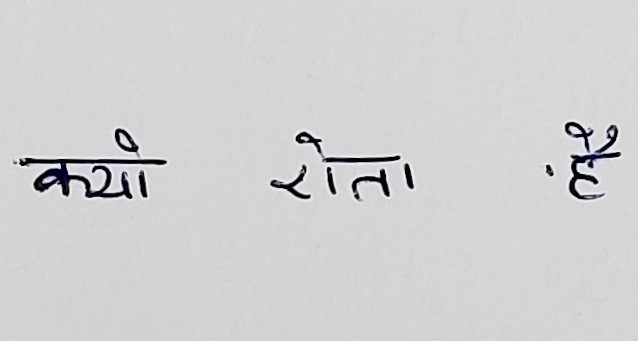 क्यो रोता है